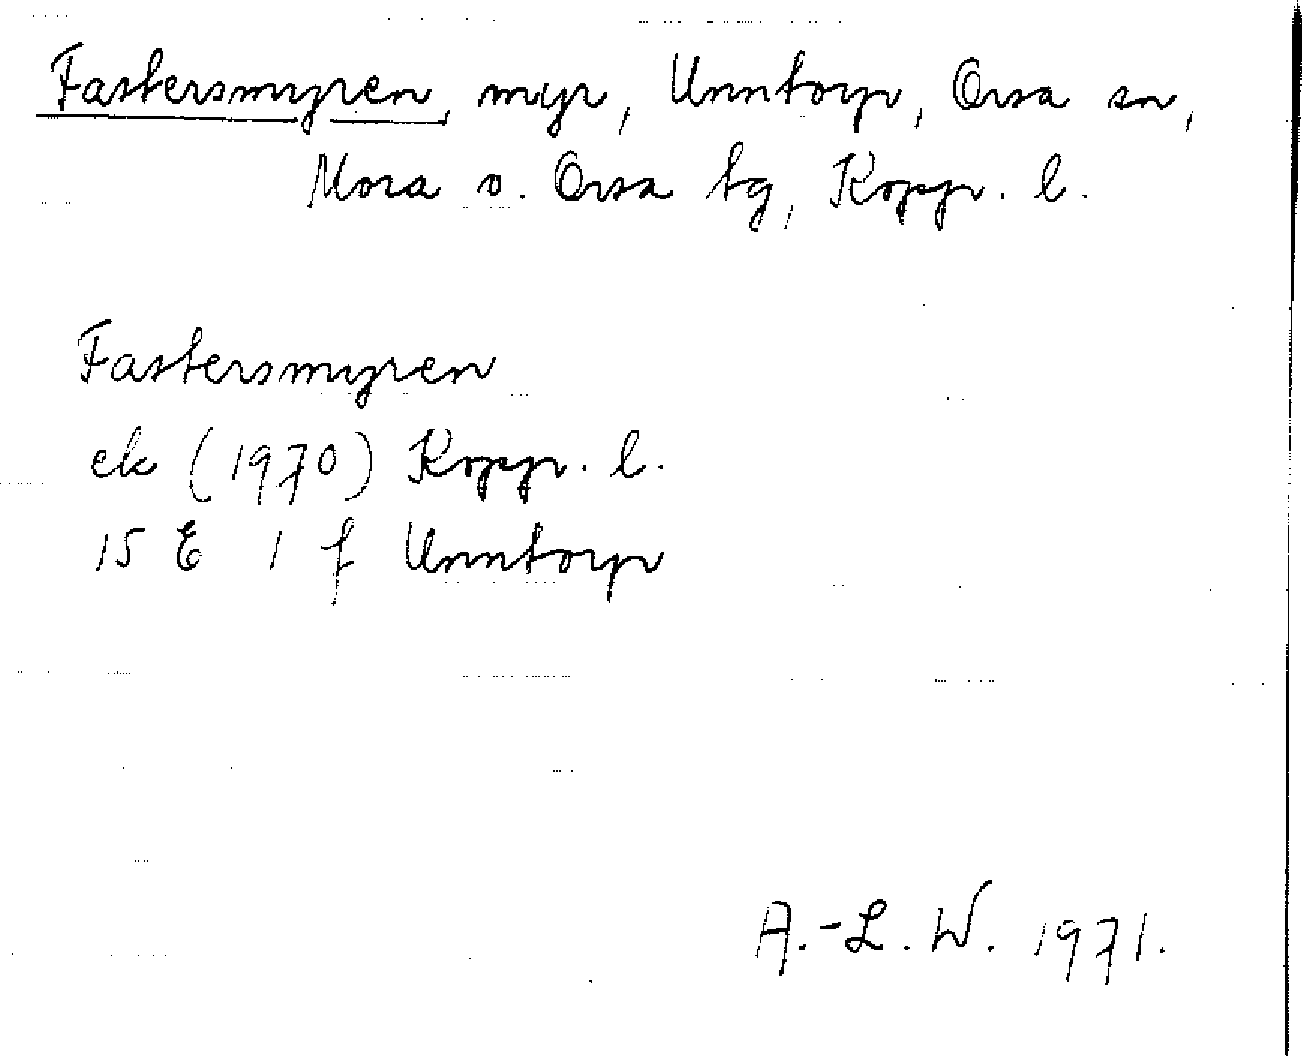 Fastersmyren, myr, Unntorp, Orsa sn,
Mora o. Orsa tg, Kopp. l.
Fastersmyren
ek (1970) Kopp. l.
15 E 1 f Unntorp
A.-L. W. 1971.